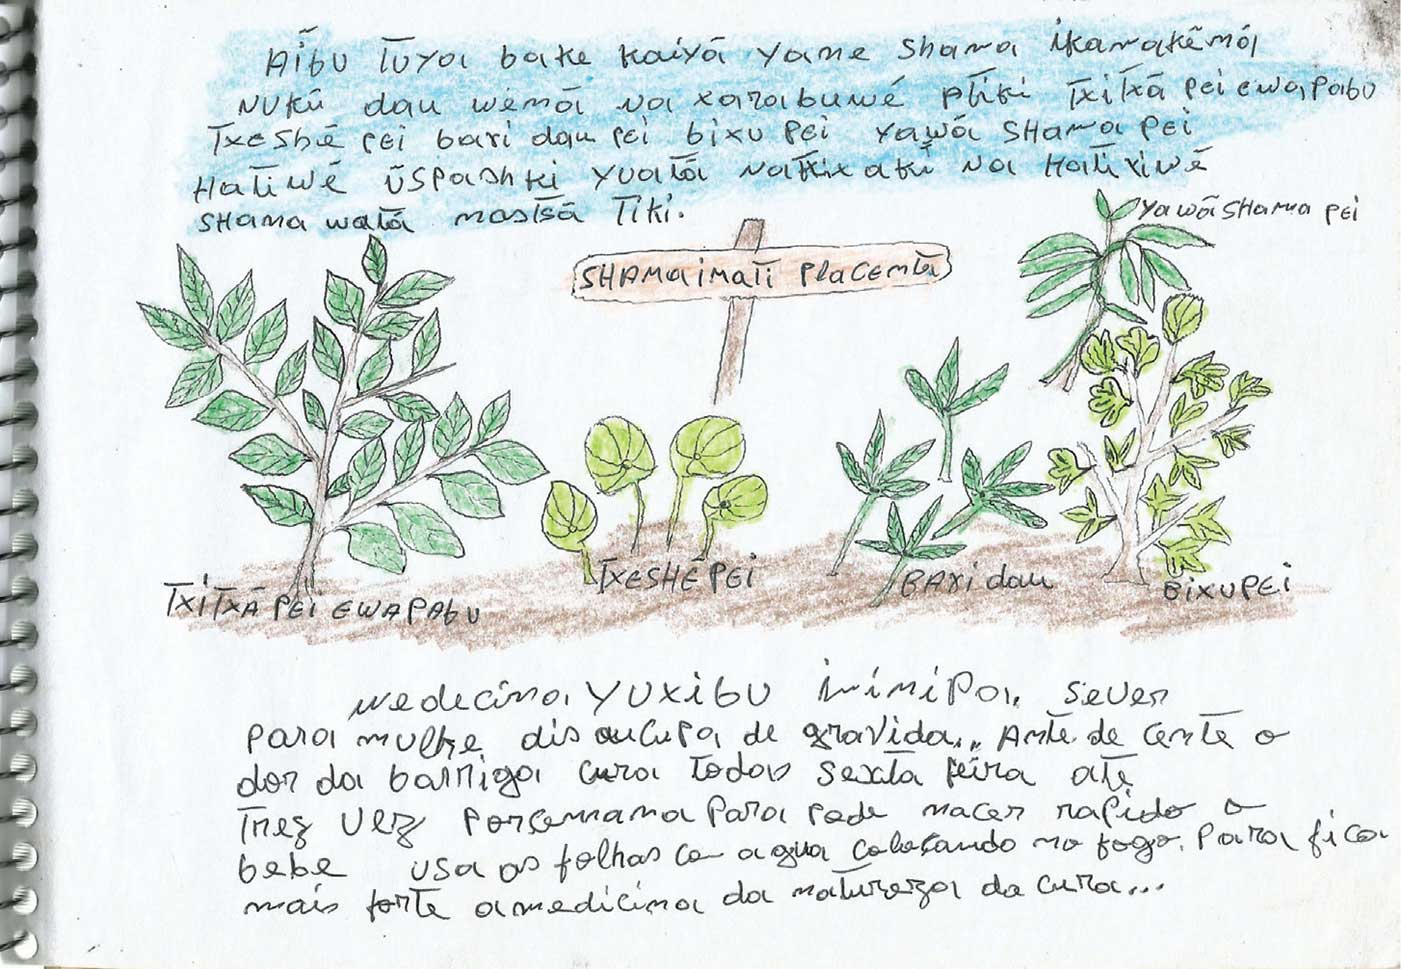 Aĩbu Tuya bake kaiyã yame shama ikamakẽmã
nukũ dau wẽmã na xarabuwẽ Atiki Txitxã pei ewapabu
Txeshẽ pei bari dau pei bixu pei yawã SHama pei
Hatiwẽ ũspashki yuatã natxixakĩ na Hatixiwẽ
SHama watã mastsã Tiki.
yawãSHama pei
SHAMAimati Placenta
TXESHẼ PEI
BAxi dau
BiXUPEi
TXiTXÃ PEi EWAPABU
medecina YUXiBU inimiPa, sever
Para mulhe dis oucupa de gravida... Ante de cente o
dor da barriga cura Todas Sexta feira até
Trez Vez Porcemana Para pode nacer rapido o
bebe usa as folhas co agua colocando no fogo. Para fica
mais forte a medicina da natureza da cura...